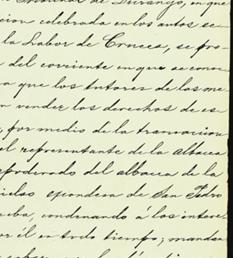 Tribunal de Durango, en que
cion celebrada en los autos se
la Labor de Cruces, se pro-
del corriente en que se con
a que los tutores de las me
n vender los derechos de es
, por medio de la transaccion
el representante de la albacea
apoderado del albacea de la
cielas de San Pedro
eba, condenando a los intere
or él en todo tiempo; manda